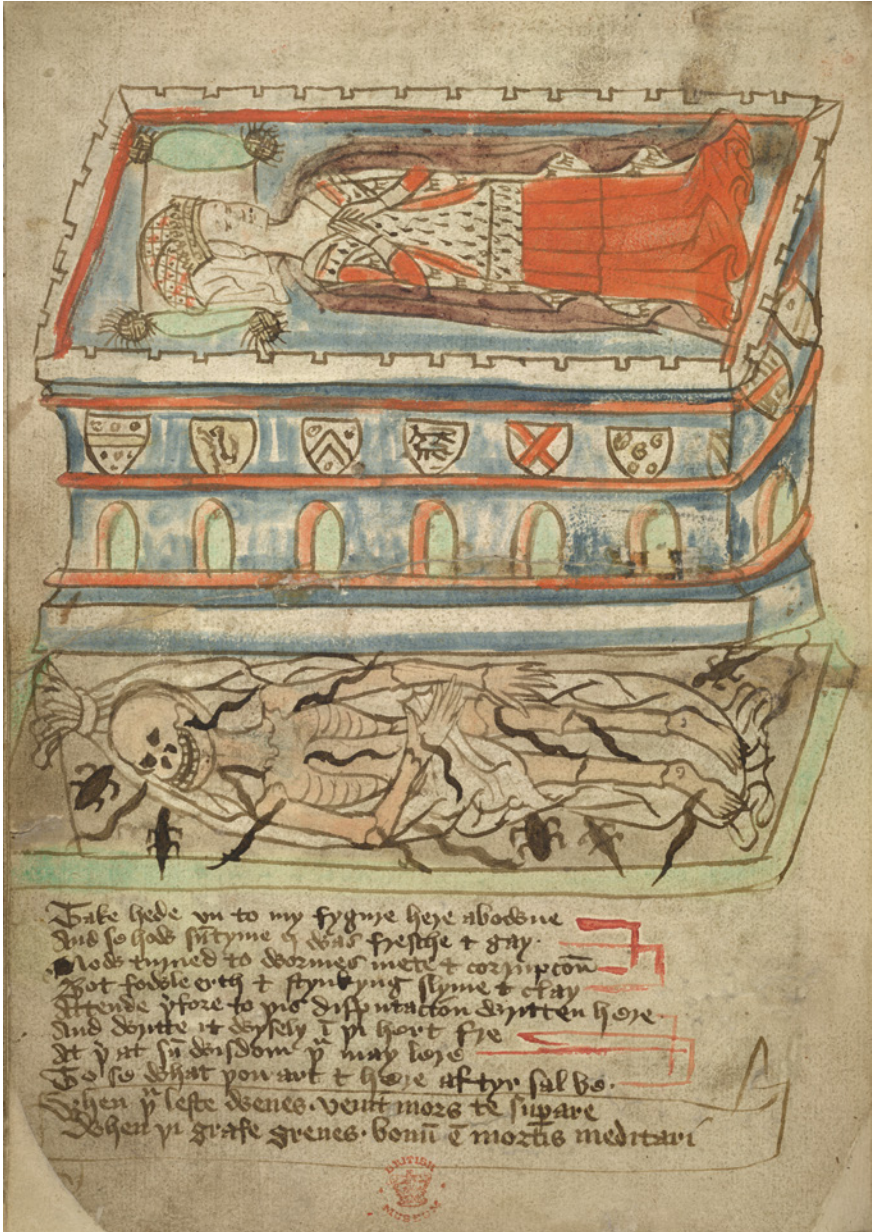 Take hede vn to my fygure here abowne
And se how sūtyme I was fresche & gay
Now turned to wormes mete & corrupcoū
Bot fowle erth & stynkyng slyme & clay
Attende þfore to þis disputacion written here
And writte it wysely ī þi hert fre
At þat sū wisdom þū may lere
To se what þou art & here aftyr sal be
When þū leste wenes. venit mors te supare
When þi grafe greues. bonū ē mortis meditari
BRITISH
MUSEUM